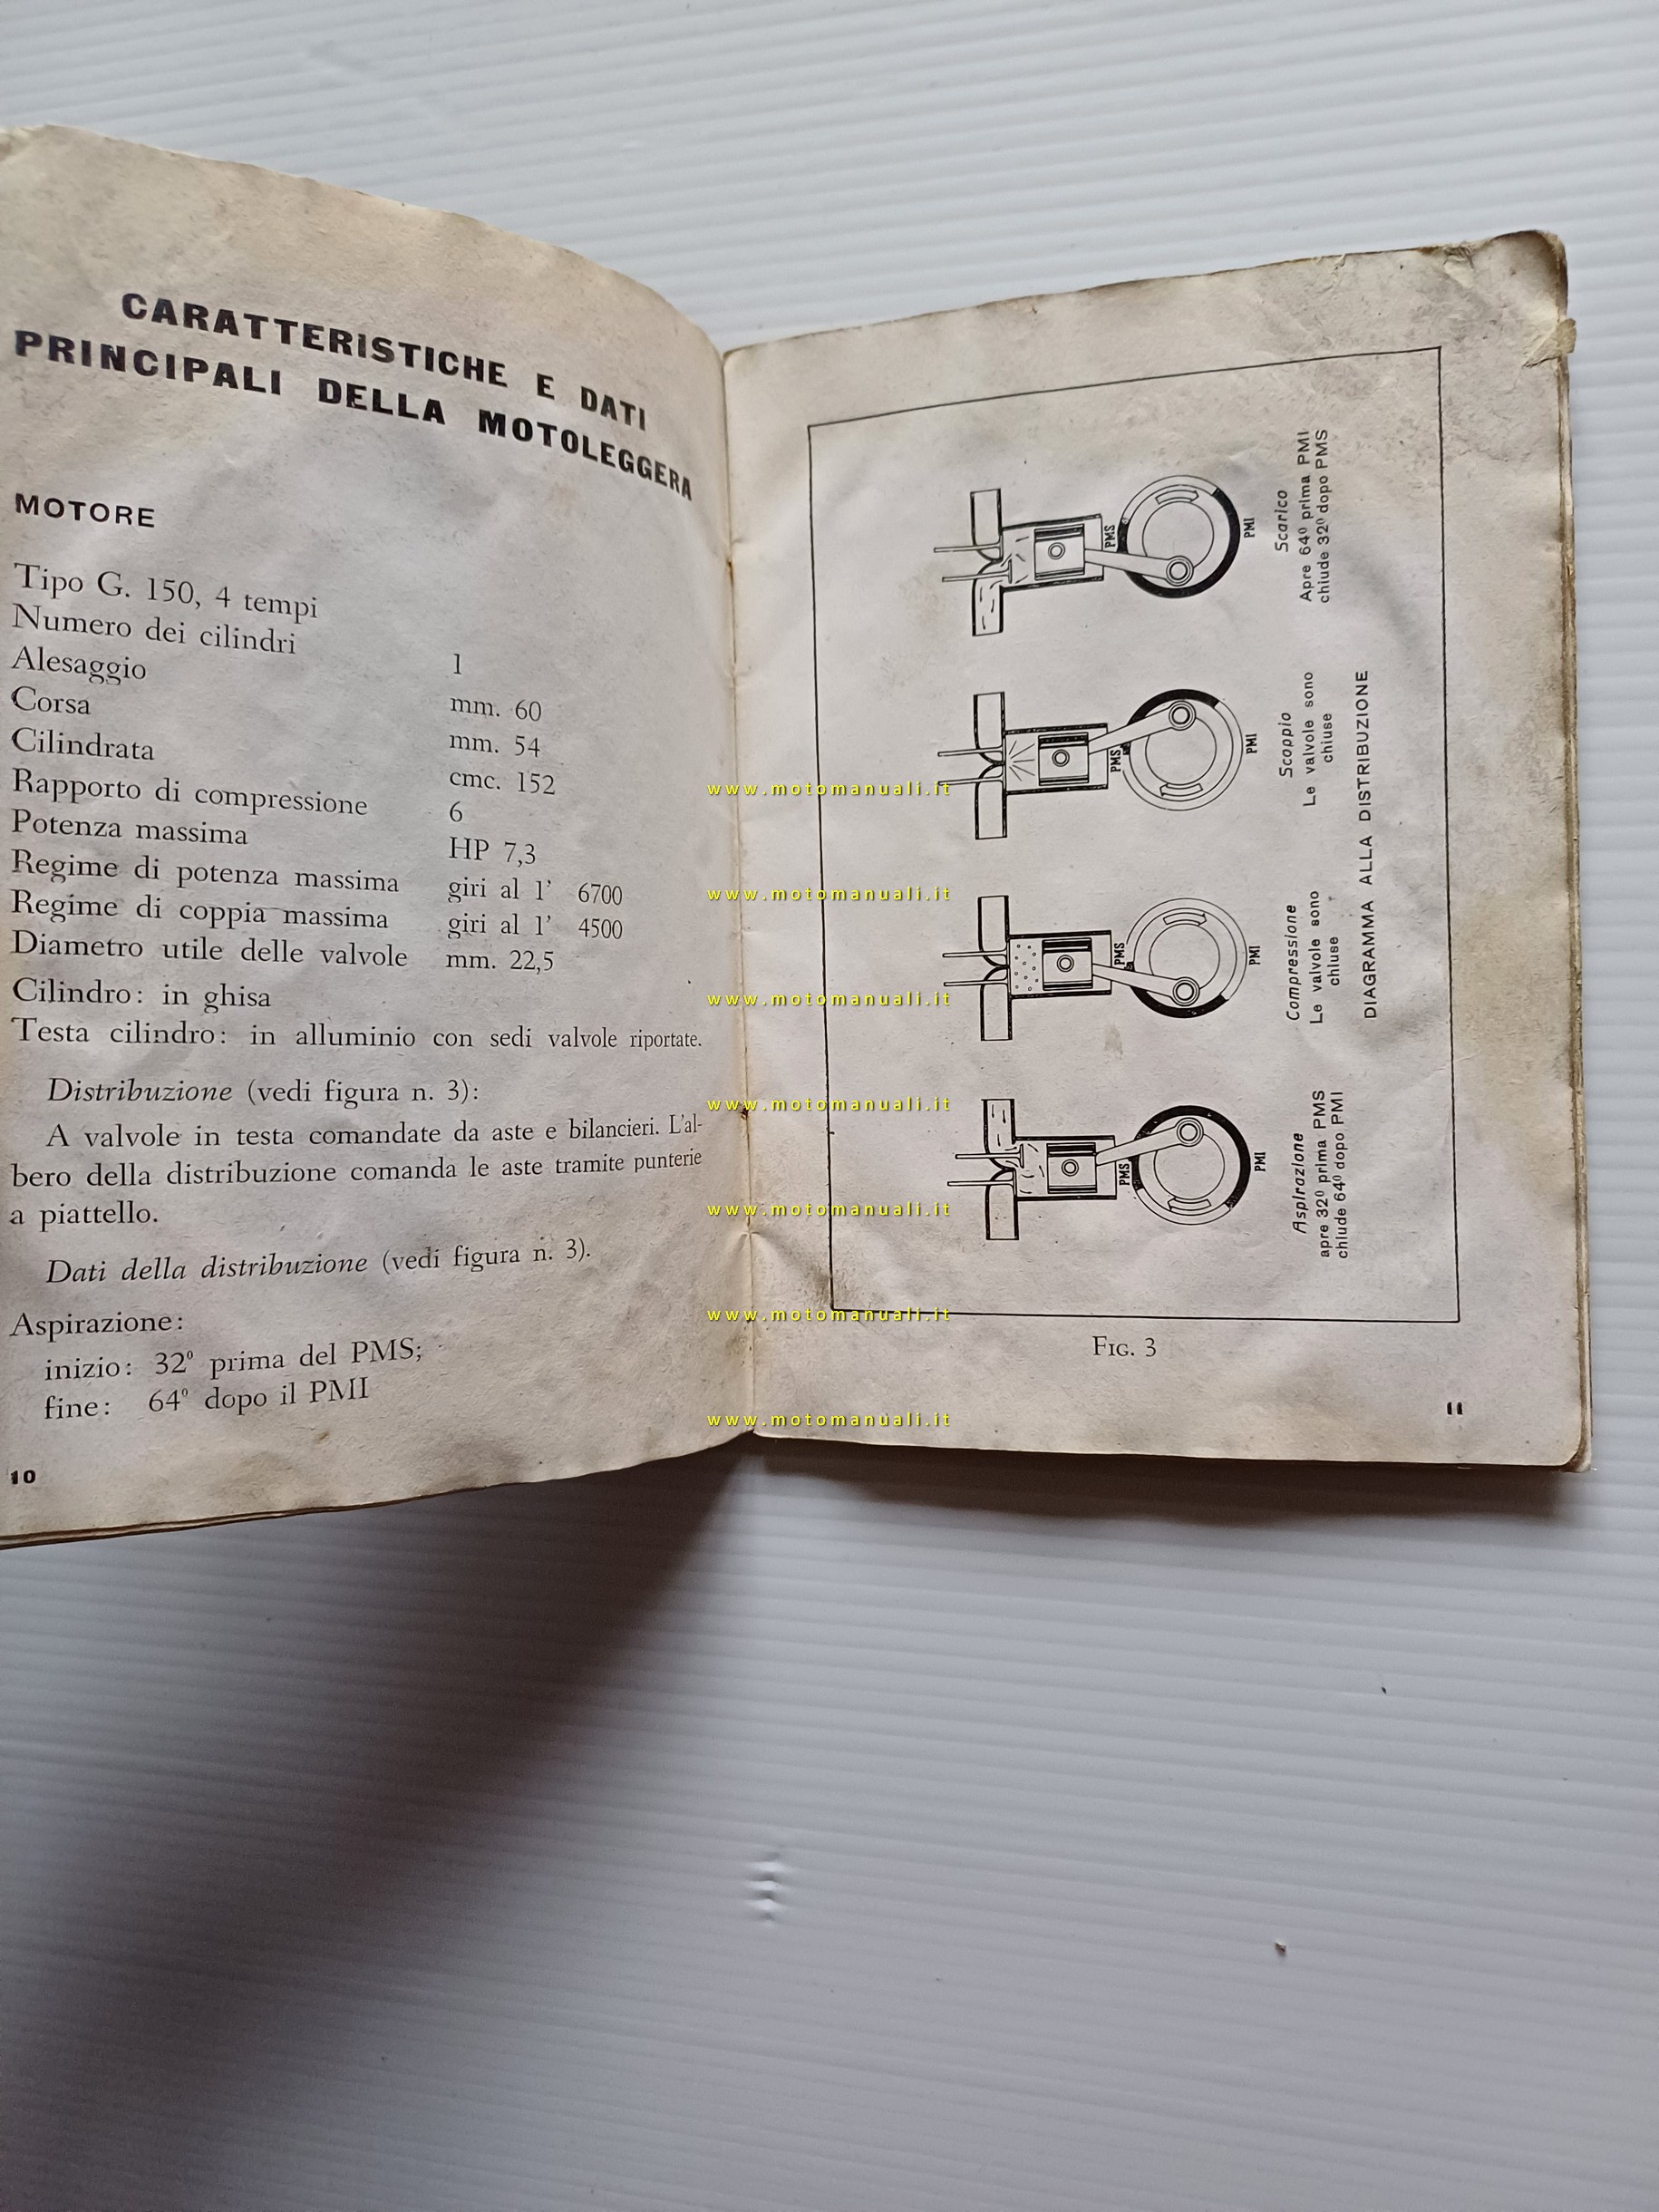 CARATTERISTICHE E DATI
PRINCIPALI DELLA MOTOLEGGERA
MOTORE
Tipo G. 150, 4 tempi
Numero dei cilindri 1
Alesaggio mm. 60
Corsa mm. 54
Cilindrata cmc. 152
Rapporto di compressione 6
Potenza massima HP 7,3
Regime di potenza massima giri al 1' 6700
Regime di coppia massima giri al 1' 4500
Diametro utile delle valvole mm. 22,5
Cilindro: in ghisa
Testa cilindro: in alluminio con sedi valvole riportate.
Distribuzione (vedi figura n. 3):
A valvole in testa comandate da aste e bilancieri. L'al-
bero della distribuzione comanda le aste tramite punterie
a piattello.
Dati della distribuzione (vedi figura n. 3).
Aspirazione:
inizio: 32° prima del PMS;
fine: 64° dopo il PMI
10
PMS
PMI
Aspirazione
apre 32° prima PMS
chiude 64° dopo PMI
PMS
PMI
Compressione
Le valvole sono
chiuse
PMS
PMI
Scoppio
Le valvole sono
chiuse
PMS
PMI
Scarico
Apre 64° prima PMI
chiude 32° dopo PMS
DIAGRAMMA ALLA DISTRIBUZIONE
FIG. 3
11
www.motomanuali.it
www.motomanuali.it
www.motomanuali.it
www.motomanuali.it
www.motomanuali.it
www.motomanuali.it
www.motomanuali.it